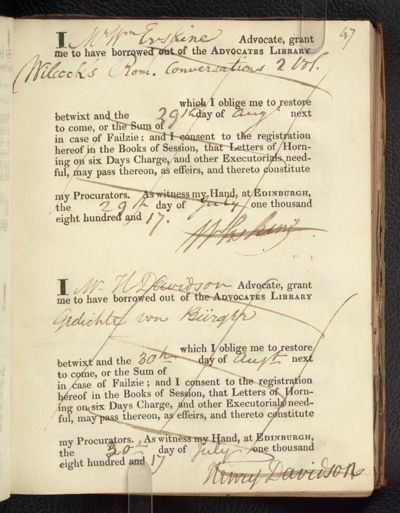 47
I Mr Wm Erskine Advocate, grant
me to have borrowed out of the ADVOCATES LIBRARY
Wilcock's Rom. Conversations 2 Vol.
which I oblige me to restore
betwixt and the 29th day of Aug next
to come, or the Sum of
in case of Failzie; and I consent to the registration
hereof in the Books of Session, that Letters of Horn-
ing on six Days Charge, and other Executorials need-
ful, may pass thereon, as effeirs, and thereto constitute
my Procurators. As witness my Hand, at EDINBURGH,
the 29th day of July one thousand
eight hundred and 17.
W Erskine
I Mr H Davidson Advocate, grant
me to have borrowed out of the ADVOCATES LIBRARY
Gedichte von Bürger
which I oblige me to restore
betwixt and the 30th day of Augt next
to come, or the Sum of
in case of Failzie; and I consent to the registration
hereof in the Books of Session, that Letters of Horn-
ing on six Days Charge, and other Executorials need-
ful, may pass thereon, as effeirs, and thereto constitute
my Procurators. As witness my Hand, at EDINBURGH,
the 30th day of July one thousand
eight hundred and 17
Henry Davidson